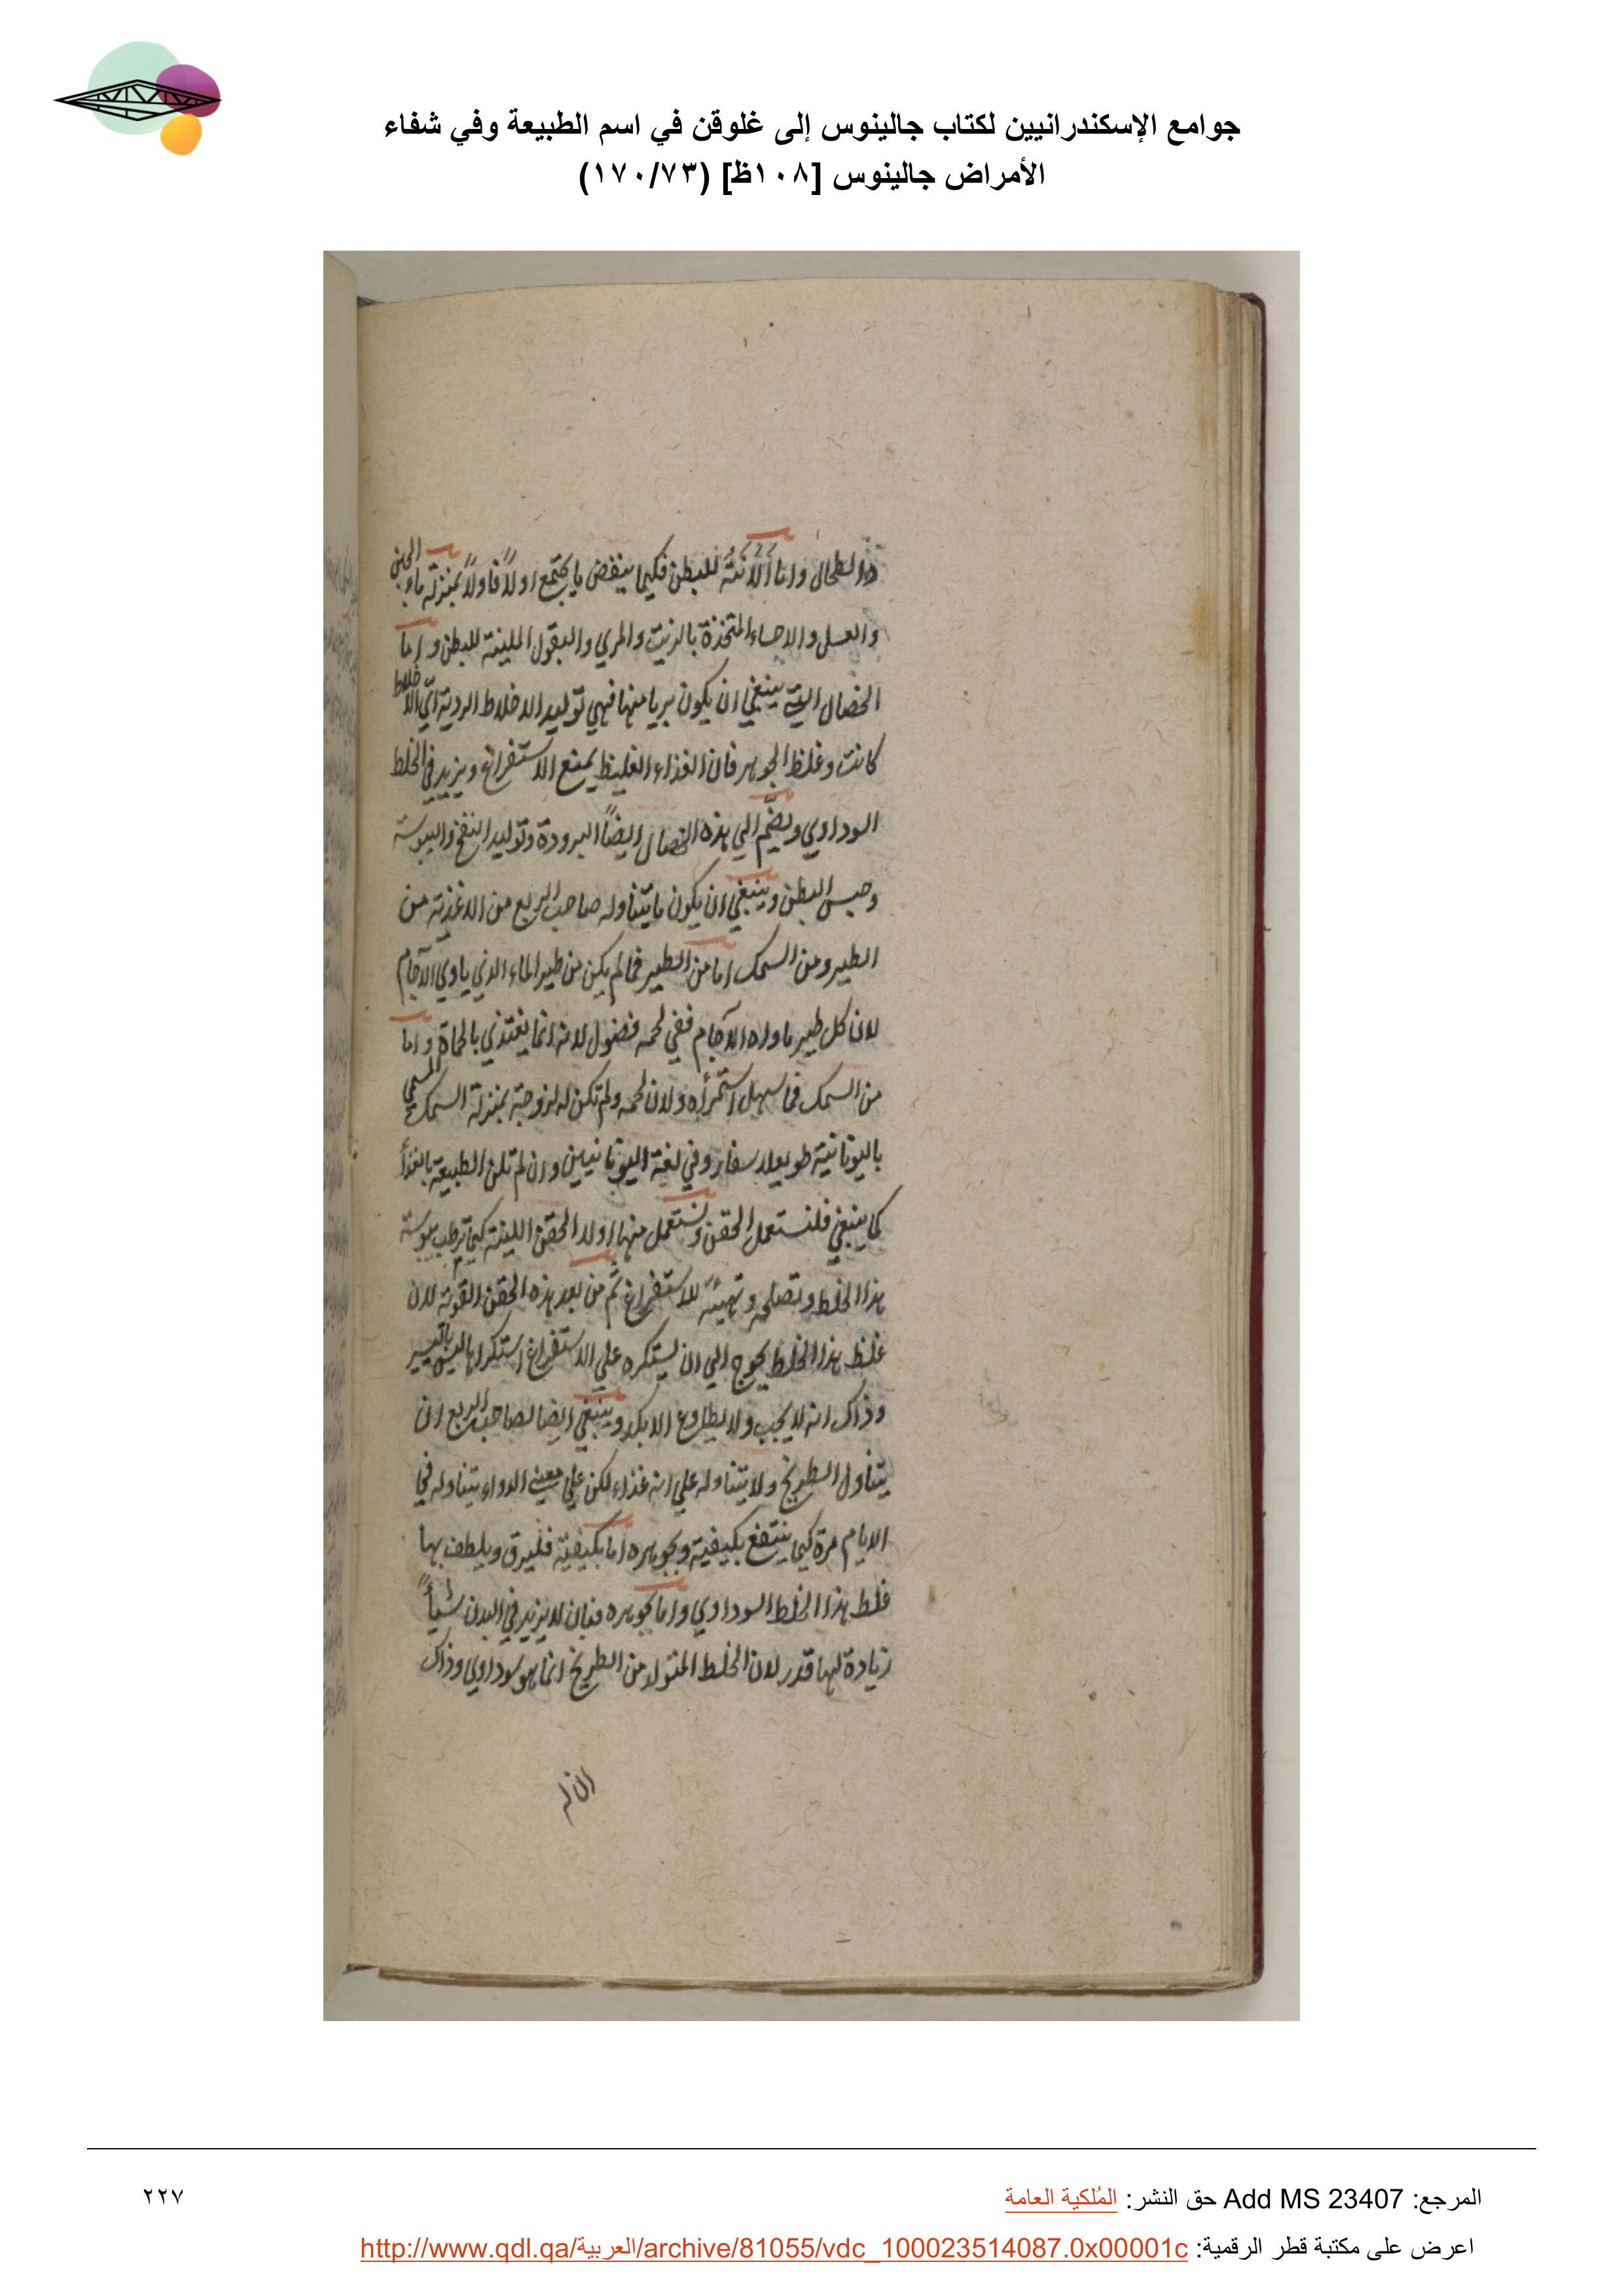 جوامع الإسكندرانيين لكتاب جالينوس إلى غلوقن في اسم الطبيعة وفي شفاء
الأمراض جالينوس [١٠٨ظ] (١٧٠/٧٣)
والطحال واما الملينة للبطن فكيما ينفض ما يجتمع اولاً فاولاً بمنزلة ماء الجبن
والعسل والاحساء المتخذة بالزيت والمري والبقول الملينة للبطن واما
الخصال التي ينبغي ان يكون بريا منها فهي توليد الاخلاط الردية اي الاخلاط
كانت وغلظ الجوهر فان الغذاء الغليظ يمنع الاستفراغ ويزيد في الخلط
السوداوي ويضم الي هذه الخصال ايضاً البرودة وتوليد النفخ واليبوسة
وحبس البطن وينبغي ان يكون ما يتناوله صاحب الربع من الاغذية من
الطير ومن السمك اما من الطير فما لم يكن من طير الماء الذي ياوي الآجام
لان كل طير ماواه الآجام ففي لحمه فضول لانه انما يغتذي بالحماة واما
من السمك فما سهل استمراؤه ولان لحمه ولم تكن له لزوجة بمنزلة السمك المسمي
باليونانية وفي لغة اليونانيين وان لم تلن الطبيعة بالغذأ
كما ينبغي فلنستعمل الحقن ونستعمل منها اولا الحقن اللينة كيما ترطب يبوسة
هذا الخلط وتصلحه وتهيئه للاستفراغ ثم من بعد هذه الحقن القوية لان
غلظ هذا الخلط يحوج الي ان يستكره علي الاستفراغ استكراها ليس باليسير
وذاك انه لا يجيب ولا يطاوع الا بكد وينبغي ايضا لصاحب الربع ان
يتناول الطريخ ولا يتناوله علي انه غذاء لكن علي معني الدواء يتناوله في
الايام مرة كيما ينتفع بكيفيته وبجوهره اما بكيفيته فليرق ويلطف بها
غلظ هذا الخلط السوداوي واما بجوهره فبان لا يزيد في البدن شيأً
زيادة لها قدر لان الخلط المتولد من الطريخ انما هو سوداوي وذاك
المرجع: Add MS 23407 حق النشر: المُلكية العامة
٢٢٧
اعرض على مكتبة قطر الرقمية: http://www.qdl.qa/العربية/archive/81055/vdc_100023514087.0x00001c